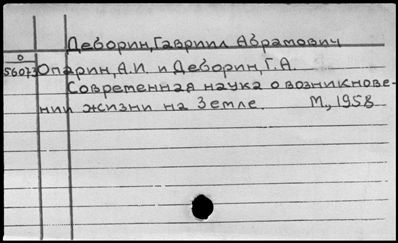 Деборин, Гавриил Абрамович
О
56073 Опарин, А.И. и Деборин, Г.А.
Современная наука о возникнове-
нии жизни на Земле. М., 1958